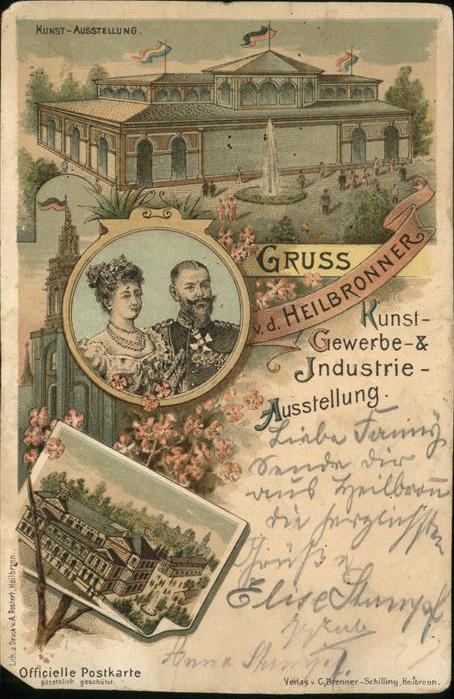 KUNST-AUSSTELLUNG.
GRUSS
v. d. HEILBRONNER
Kunst-
Gewerbe-&
Industrie-
Ausstellung.
Liebe Fanny
Sende dir
aus Heilbronn
die herzlichsten
Grüße
Elise Stumpf
Anna Stumpf
Lith. u. Druck v. A. Rostert, Heilbronn.
Officielle Postkarte
gesetzlich geschützt.
Verlag v. C. Brenner-Schilling, Heilbronn.